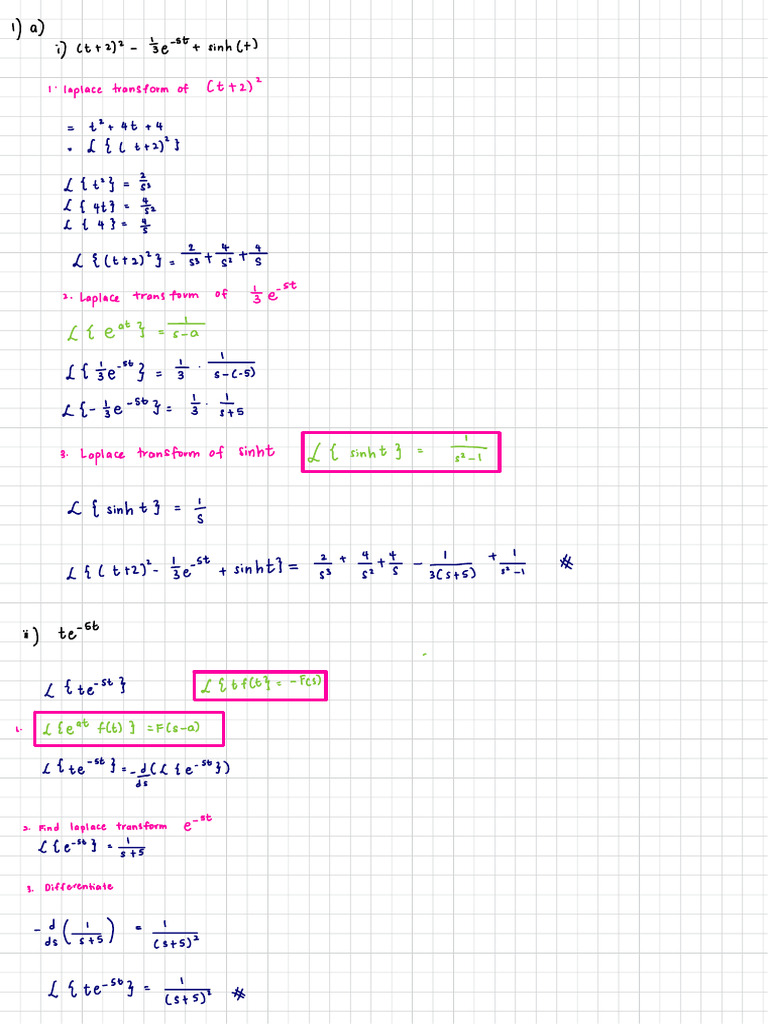 1) a)
i) (t+2)² - 1/3 e^-5t + sinh(t)
1. laplace transform of (t+2)²
= t² + 4t + 4
• ℒ{(t+2)²}
ℒ{t²} = 2/s³
ℒ{4t} = 4/s²
ℒ{4} = 4/s
ℒ{(t+2)²} = 2/s³ + 4/s² + 4/s
2. Laplace transform of 1/3 e^-5t
ℒ{e^at} = 1/s-a
ℒ{1/3 e^-5t} = 1/3 · 1/s-(-5)
ℒ{-1/3 e^-5t} = 1/3 · 1/s+5
3. Laplace transform of sinht ℒ{sinht} = 1/s²-1
ℒ{sinht} = 1/s
ℒ{(t+2)² - 1/3 e^-5t + sinht} = 2/s³ + 4/s² + 4/s - 1/3(s+5) + 1/s²-1 ※
ii) te^-5t
ℒ{te^-5t} ℒ{tf(t} = -F(s)
1. ℒ{e^at f(t)} = F(s-a)
ℒ{te^-5t} = -d/ds(ℒ{e^-5t})
2. Find laplace transform e^-5t
ℒ{e^-5t} = 1/s+5
3. Differentiate
-d/ds(1/s+5) = 1/(s+5)²
ℒ{te^-5t} = 1/(s+5)² ※